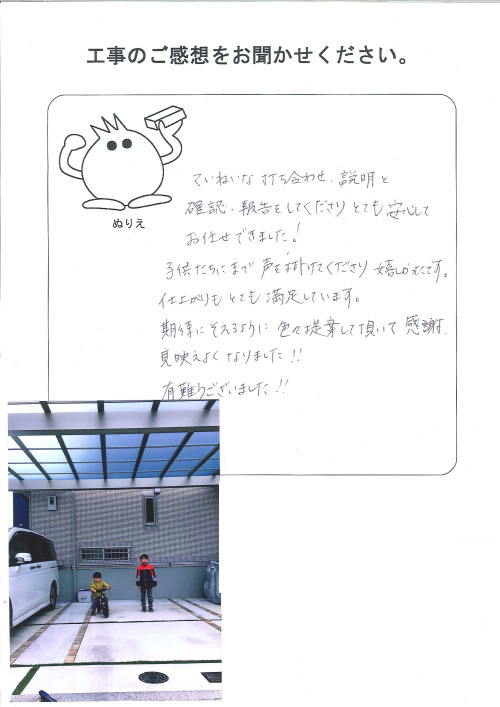 工事のご感想をお聞かせください。
ぬりえ
ていねいな打ち合わせ、説明と
確認、報告をしてくださりとても安心して
お任せできました！
子供たちにまで声を掛けてくださり嬉しかったです。
仕上がりもとても満足しています。
期待にそえるように色々提案して頂いて感謝、
見映えよくなりました！！
有難うございました！！